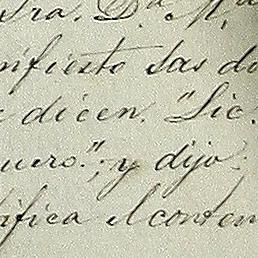 Sra. Dª M.ª
nifiesto las do
dicen. "Lic.
uero."; y dijo:
ifica el conten